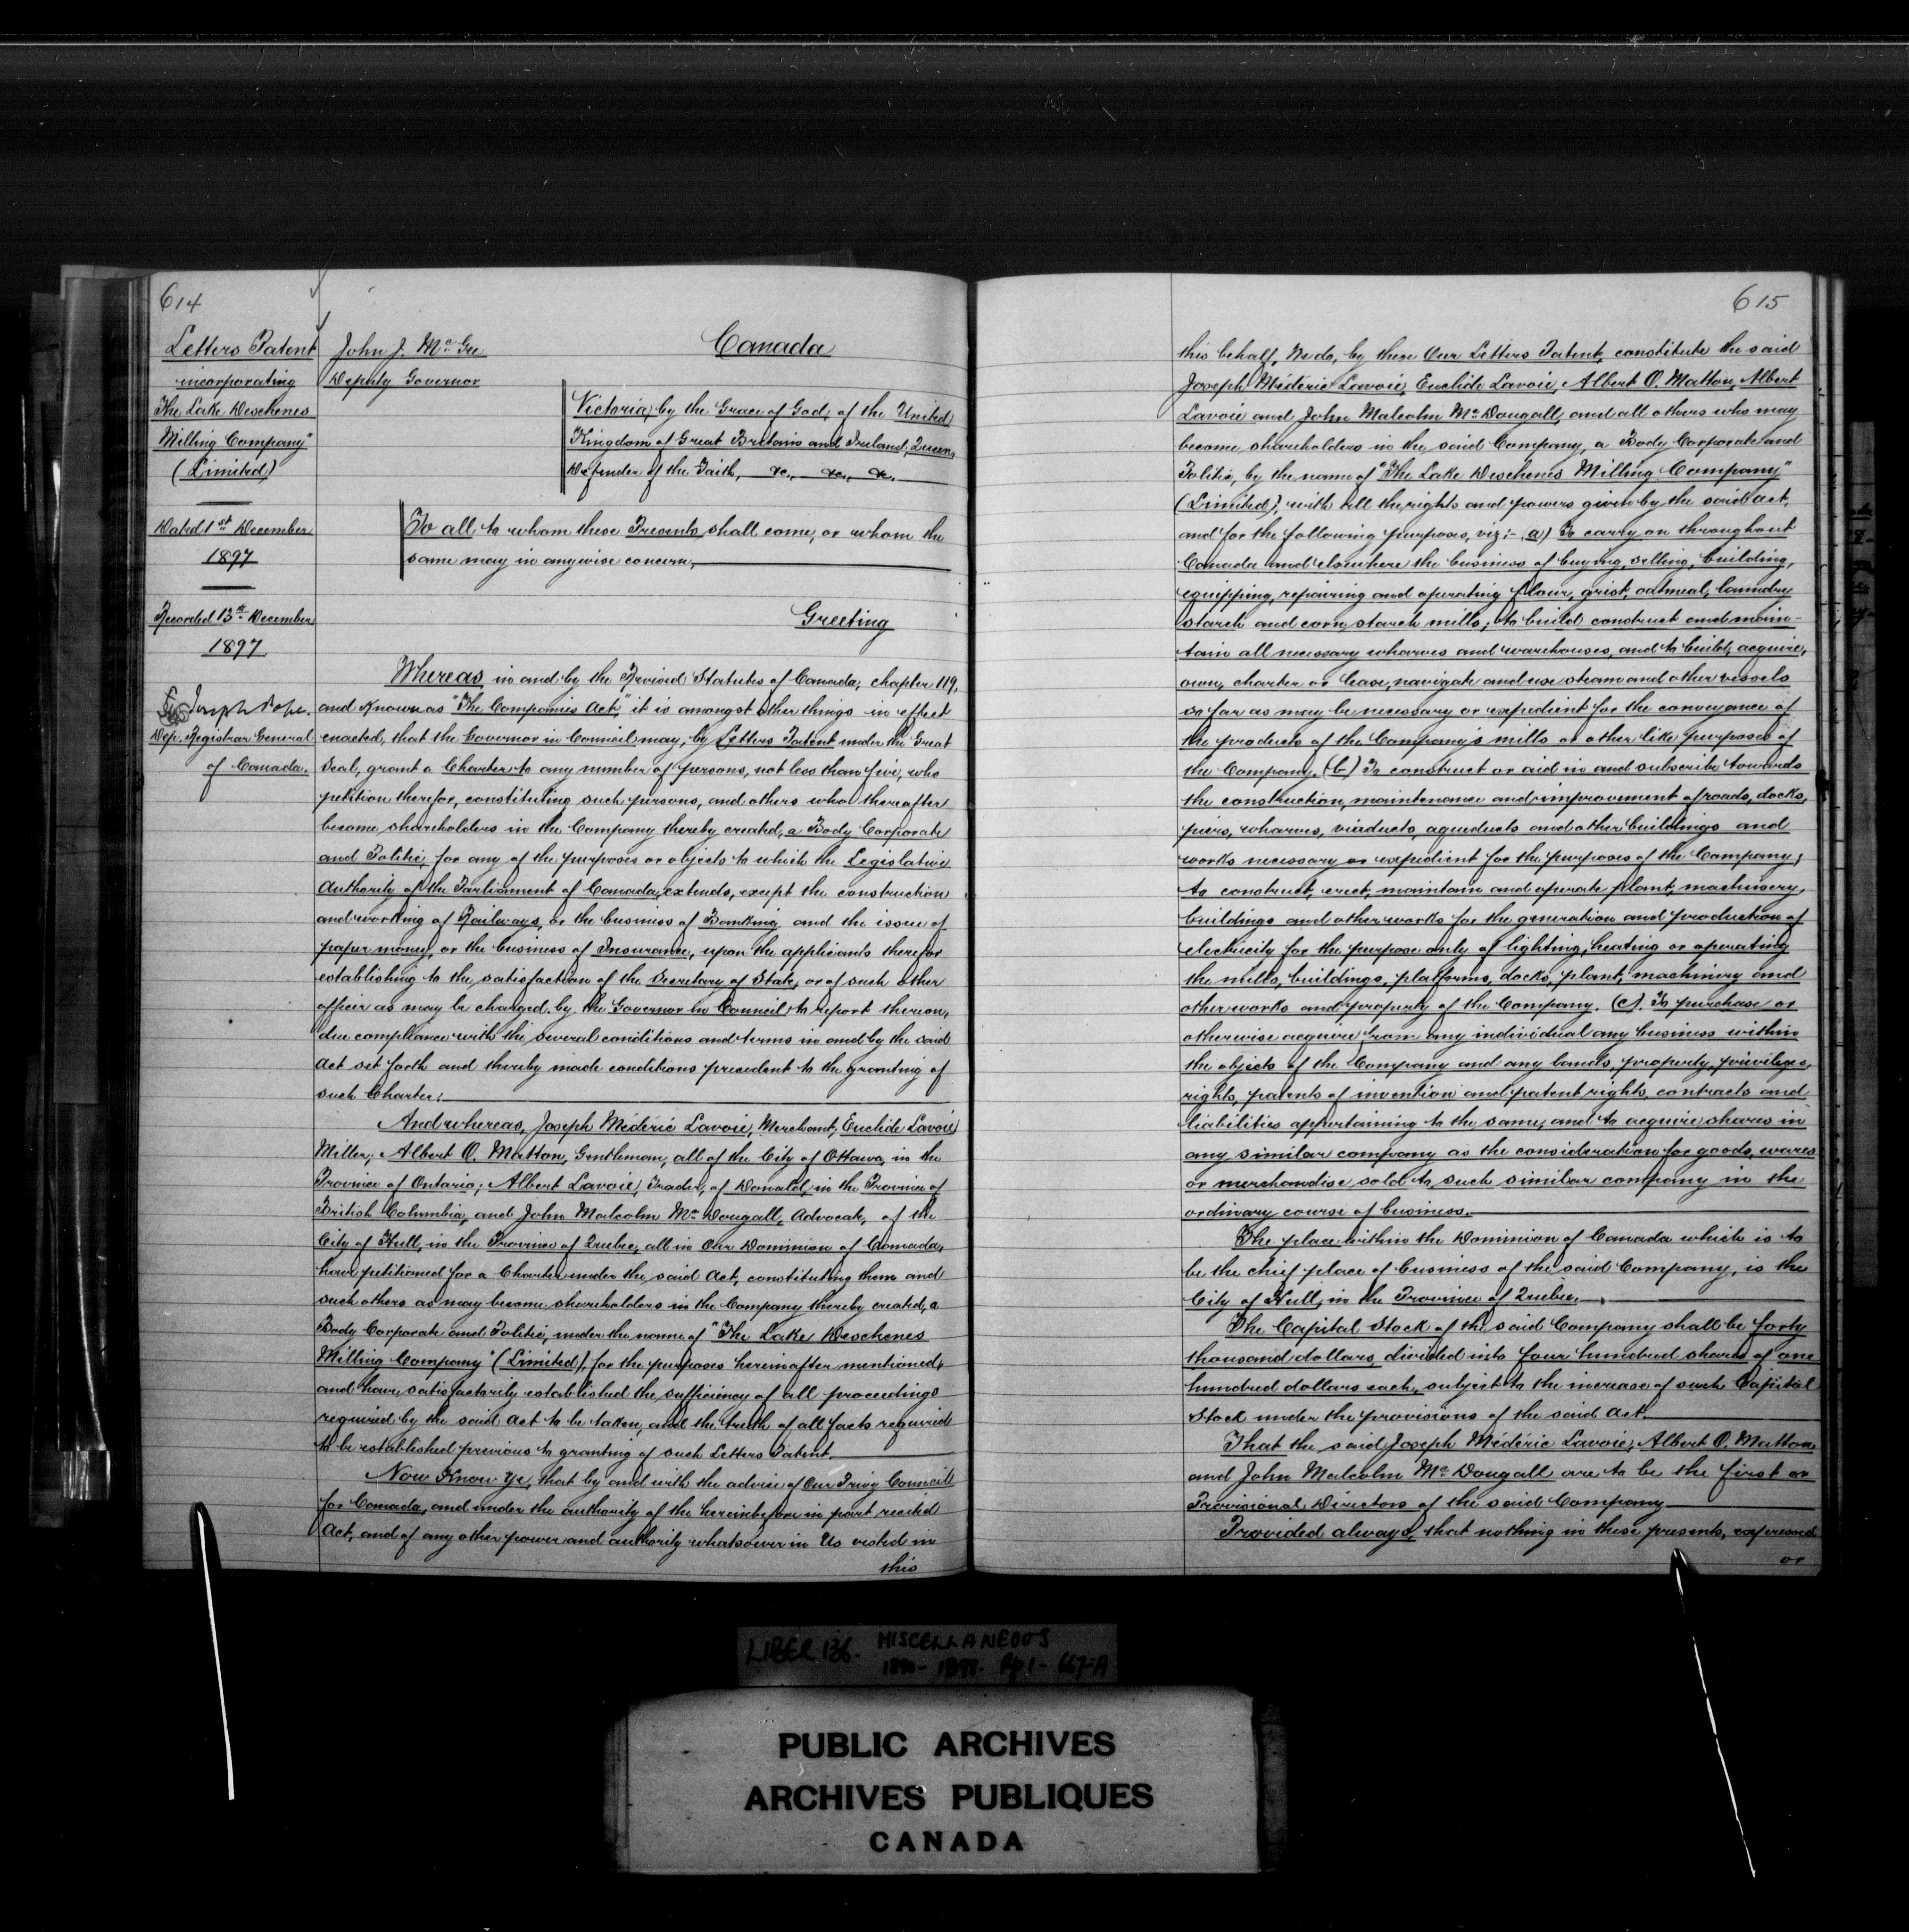 614
Letters Patent
incorporating
The Lake Deschenes
Milling Company"
(Limited)
Dated 1st December
1897
Recorded 13th December
1897
Joseph Pope.
Dep. Registrar General
of Canada.
John J. McGee
Deputy Governor
Canada
Victoria, by the Grace of God, of the United
Kingdom of Great Britain and Ireland, Queen,
Defender of the Faith, &c., &c., &c.
To all to whom these Presents shall come, or whom the
same may in anywise concern,
Greeting
Whereas in and by the Revised Statutes of Canada, chapter 119,
and known as "The Companies Act," it is amongst other things in effect
enacted, that the Governor in Council may, by Letters Patent under the Great
Seal, grant a Charter to any number of persons, not less than five, who
petition therefor, constituting such persons, and others who thereafter
become shareholders in the Company thereby created, a Body Corporate
and Politic, for any of the purposes or objects to which the Legislative
Authority of the Parliament of Canada extends, except the construction
and working of Railways, or the business of Banking and the issue of
paper money, or the business of Insurance, upon the applicants therefor
establishing to the satisfaction of the Secretary of State, or of such other
officer as may be charged by the Governor in Council to report thereon,
due compliance with the several conditions and terms in and by the said
Act set forth and thereby made conditions precedent to the granting of
such Charter:
And whereas, Joseph Médéric Lavoie, Merchant, Euclide Lavoie,
Miller, Albert O. Matton, Gentleman, all of the City of Ottawa, in the
Province of Ontario; Albert Lavoie, Trader, of Donald, in the Province of
British Columbia, and John Malcolm McDougall, Advocate, of the
City of Hull, in the Province of Quebec, all in Our Dominion of Canada,
have petitioned for a Charter under the said Act, constituting them and
such others as may become shareholders in the Company thereby created, a
Body Corporate and Politic, under the name of "The Lake Deschenes
Milling Company" (Limited), for the purposes hereinafter mentioned,
and have satisfactorily established the sufficiency of all proceedings
required by the said Act to be taken, and the truth of all facts required
to be established previous to granting of such Letters Patent.
Now Know Ye, that by and with the advice of Our Privy Council
for Canada, and under the authority of the hereinbefore in part recited
Act, and of any other power and authority whatsoever in Us vested in
this
615
this behalf, We do, by these Our Letters Patent, constitute the said
Joseph Médéric Lavoie, Euclide Lavoie, Albert O. Matton, Albert
Lavoie and John Malcolm McDougall, and all others who may
become shareholders in the said Company, a Body Corporate and
Politic, by the name of "The Lake Deschenes Milling Company"
(Limited), with all the rights and powers given by the said Act,
and for the following purposes, viz:- (a) To carry on throughout
Canada and elsewhere the business of buying, selling, building,
equipping, repairing and operating flour, grist, oatmeal, laundry
starch and corn starch mills; to build construct and main-
tain all necessary wharves and warehouses, and to build, acquire,
own, charter or lease, navigate and use steam and other vessels
so far as may be necessary or expedient for the conveyance of
the products of the Company's mills or other like purposes of
the Company. (b) To construct or aid in and subscribe towards
the construction, maintenance and improvement of roads, docks,
piers, wharves, viaducts, aqueducts and other buildings and
works necessary or expedient for the purposes of the Company;
to construct, erect, maintain and operate plant, machinery,
buildings and other works for the generation and production of
electricity for the purpose only of lighting, heating or operating
the mills, buildings, platforms, docks, plant, machinery and
other works and property of the Company. (c). To purchase or
otherwise acquire from any individual any business within
the objects of the Company and any lands, property, privileges,
rights, patents of invention and patent rights, contracts and
liabilities appertaining to the same, and to acquire shares in
any similar company as the consideration for goods, wares
or merchandise sold to such similar company in the
ordinary course of business.
The place within the Dominion of Canada which is to
be the chief place of business of the said Company, is the
City of Hull, in the Province of Quebec.
The Capital Stock of the said Company shall be forty
thousand dollars, divided into four hundred shares of one
hundred dollars each, subject to the increase of such Capital
Stock under the provisions of the said Act.
That the said Joseph Médéric Lavoie, Albert O. Matton
and John Malcolm McDougall are to be the first or
Provisional Directors of the said Company
Provided always, that nothing in these presents, expressed
or
LIBER 136. MISCELLANEOUS
PUBLIC ARCHIVES
ARCHIVES PUBLIQUES
CANADA